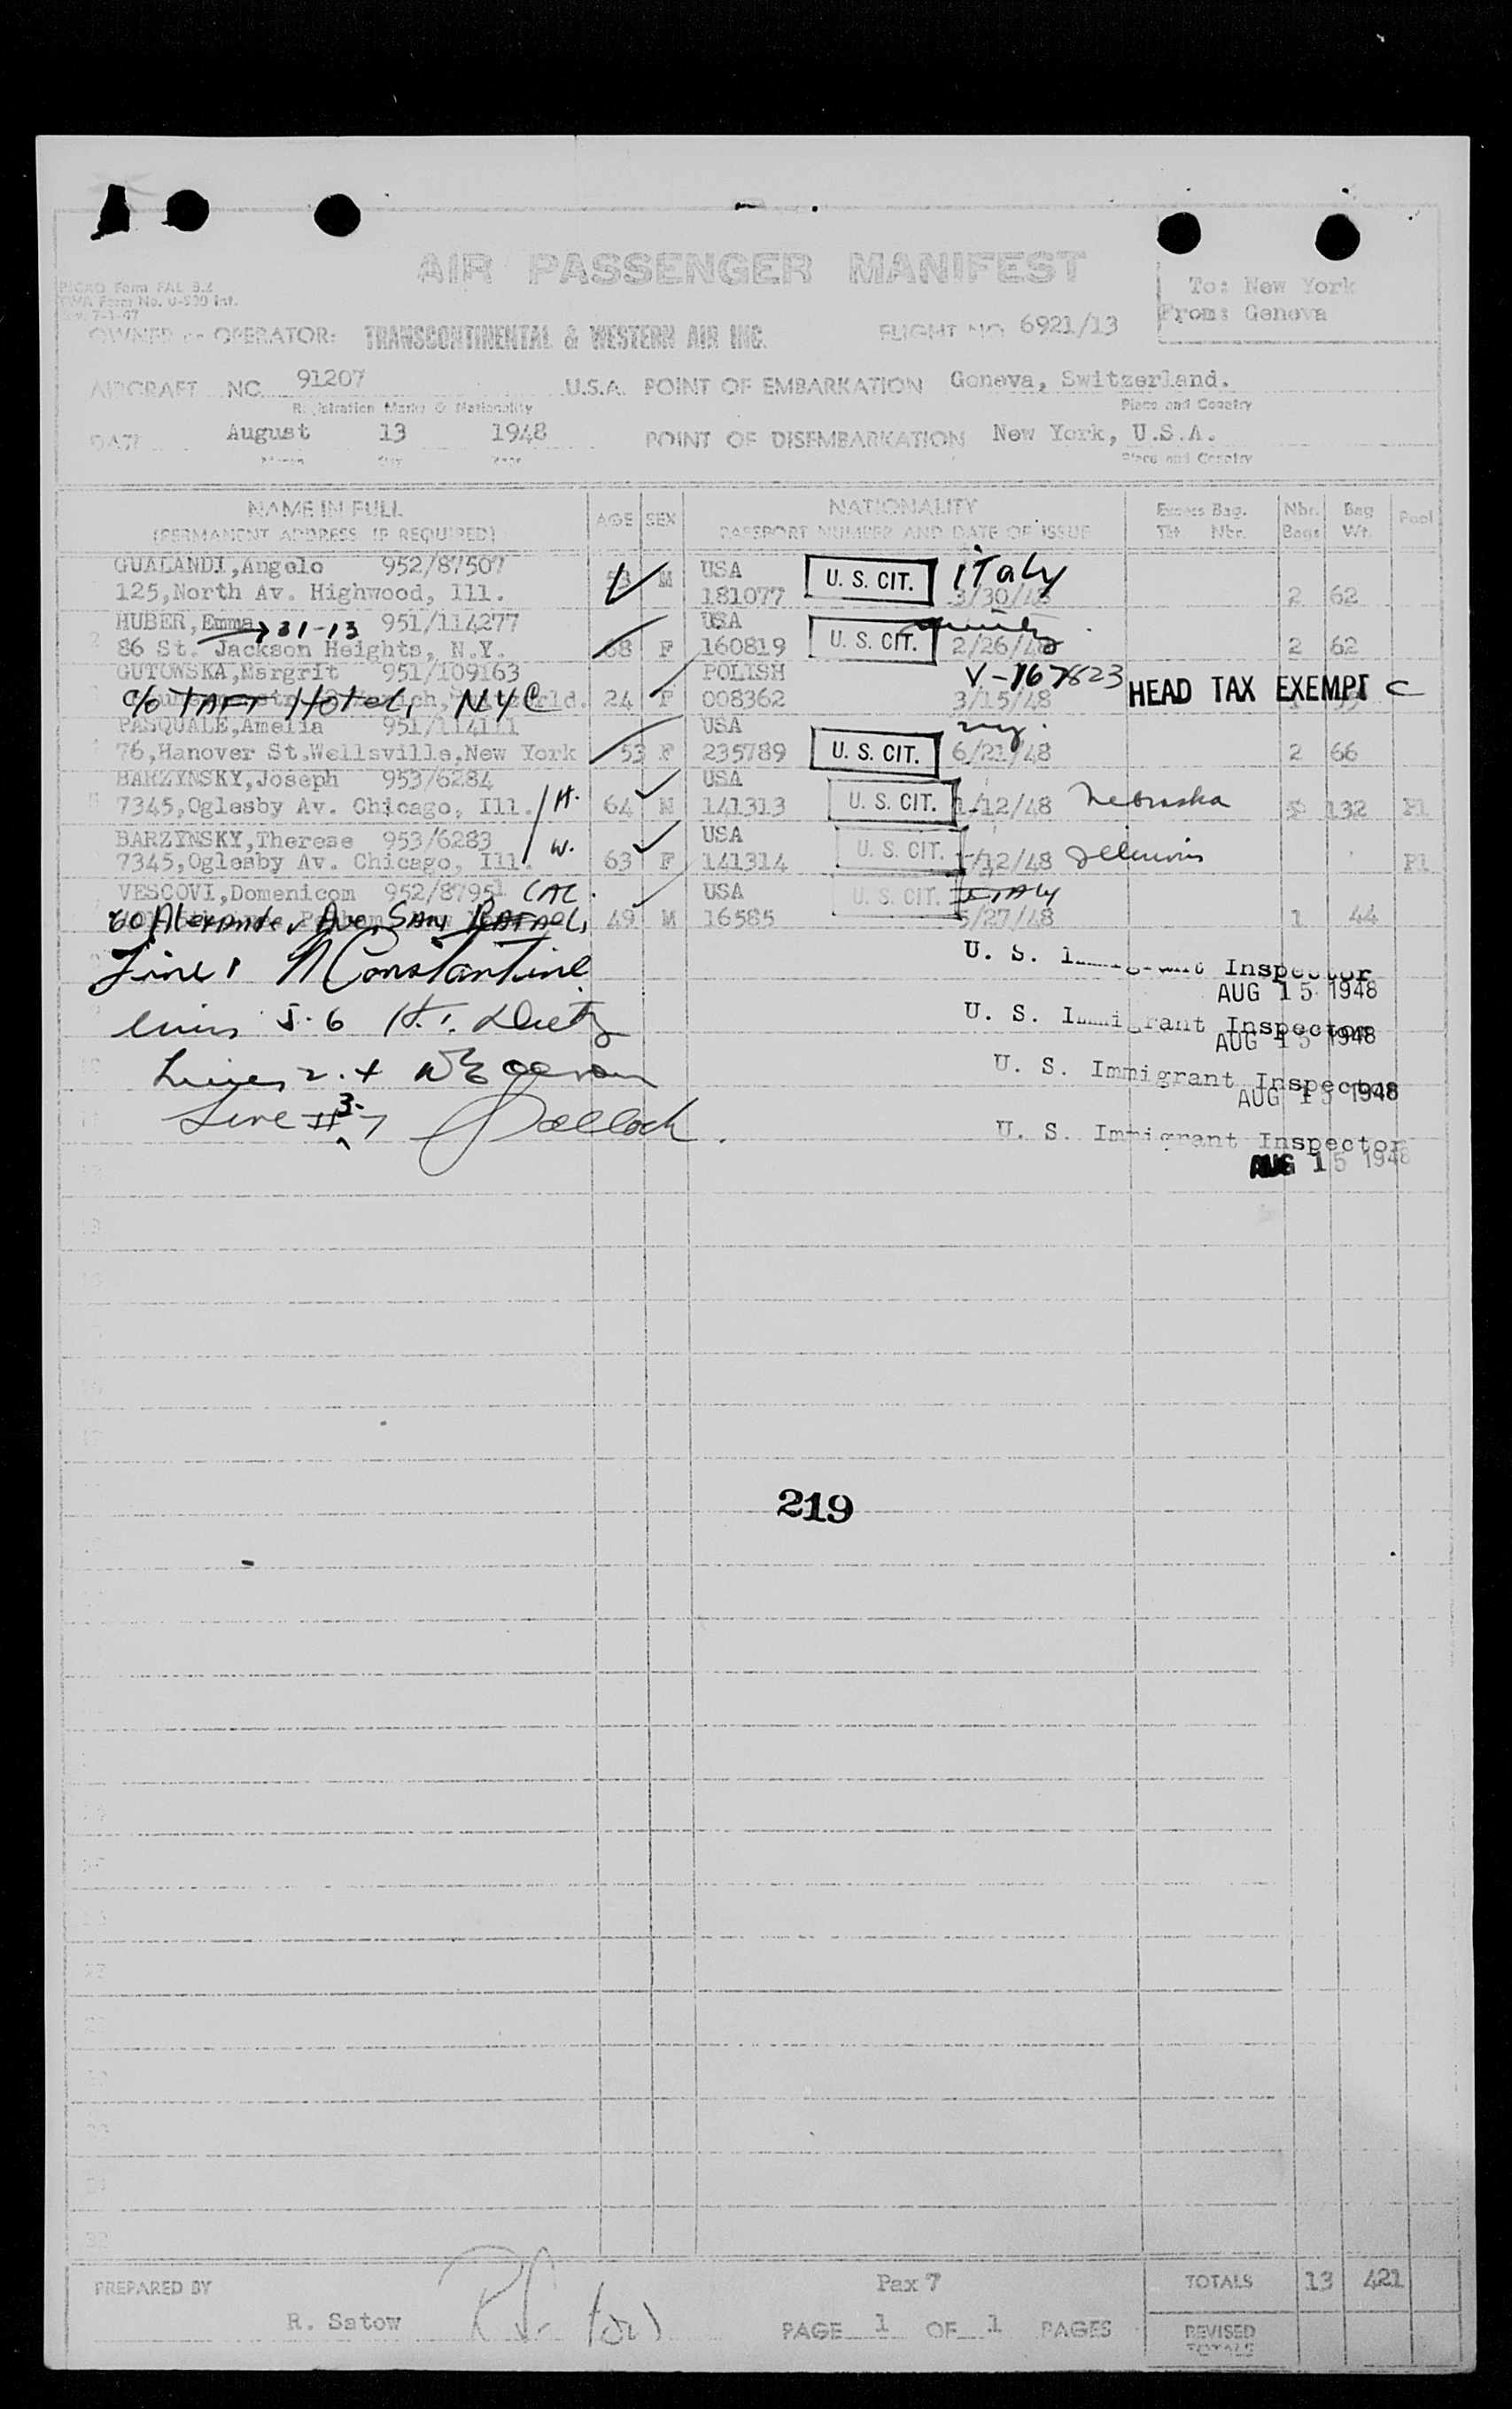 AIR PASSENGER MANIFEST
PICAO Form FAL 3.2
TWA Form No. 0-530 Int.
To: New York
From: Geneva
OWNER or OPERATOR: TRANSCONTINENTAL & WESTERN AIR INC. FLIGHT NO 6921/13
AIRCRAFT NO. 91207 U.S.A. POINT OF EMBARKATION Geneva, Switzerland.
Registration Marks & Nationality Place and Country
DATE August 13 1948 POINT OF DISEMBARKATION New York, U.S.A.
Month Day Year Place and Country
NAME IN FULL AGE SEX NATIONALITY Excess Bag. Nbr. Bag Pool
(PERMANENT ADDRESS IF REQUIRED) PASSPORT NUMBER AND DATE OF ISSUE Tkt Nbr. Bags Wt.
GUALANDI,Angelo 952/87507 53 M USA U. S. CIT. iTaly
125,North Av. Highwood, Ill. 181077 3/30/48 2 62
HUBER,Emma 951/114277 USA
→ 31-13
86 St. Jackson Heights, N.Y. 68 F 160819 U. S. CIT. 2/26/48 2 62
GUTOWSKA,Margrit 951/109163 POLISH V-167823
c/o TAFT Hotel, NYC 24 F 008362 3/15/48 HEAD TAX EXEMPT C
PASQUALE,Amelia 951/114111 USA
76,Hanover St.Wellsville,New York 53 F 235789 U. S. CIT. 6/21/48 2 66
BARZYNSKY,Joseph 953/6284 USA
7345,Oglesby Av. Chicago, Ill. H. 64 M 141313 U. S. CIT. 1/12/48 Nebraska 132 Pl
BARZYNSKY,Therese 953/6283 W. USA
7345,Oglesby Av. Chicago, Ill. 63 F 141314 U. S. CIT. 1/12/48 Illinois Pl
VESCOVI,Domenicom 952/87951 CAL. USA U. S. CIT. ITALY
60 Alexander Ave, SAN RAFAEL, 49 M 16585 5/27/48 1 44
Line 1 N Constantine U. S. Immigrant Inspector
AUG 15 1948
lines 5-6 H. Dietz U. S. Immigrant Inspector
AUG 15 1948
Lines 2. 4 U. S. Immigrant Inspector
AUG 15 1948
Line # 3-7 Pollock U. S. Immigrant Inspector
AUG 15 1948
219
PREPARED BY Pax 7 TOTALS 13 421
R. Satow PAGE 1 OF 1 PAGES REVISED
TOTALS